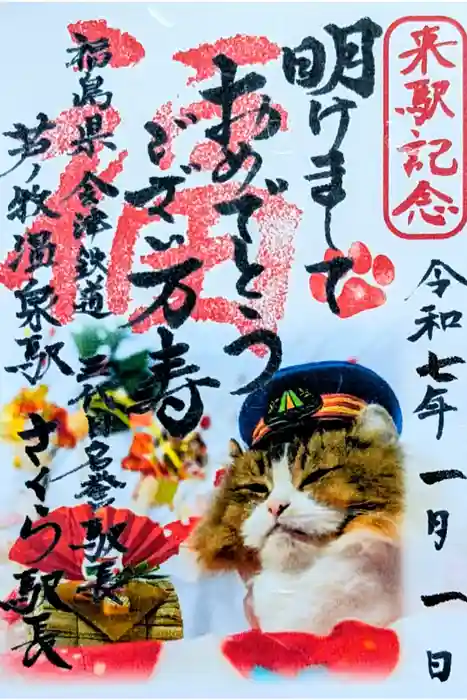 来駅記念
令和七年一月一日
明けまして
おめでとう
ございます
万寿
福
福島県会津鉄道
芦ノ牧温泉駅
三代目名誉駅長
さくら駅長